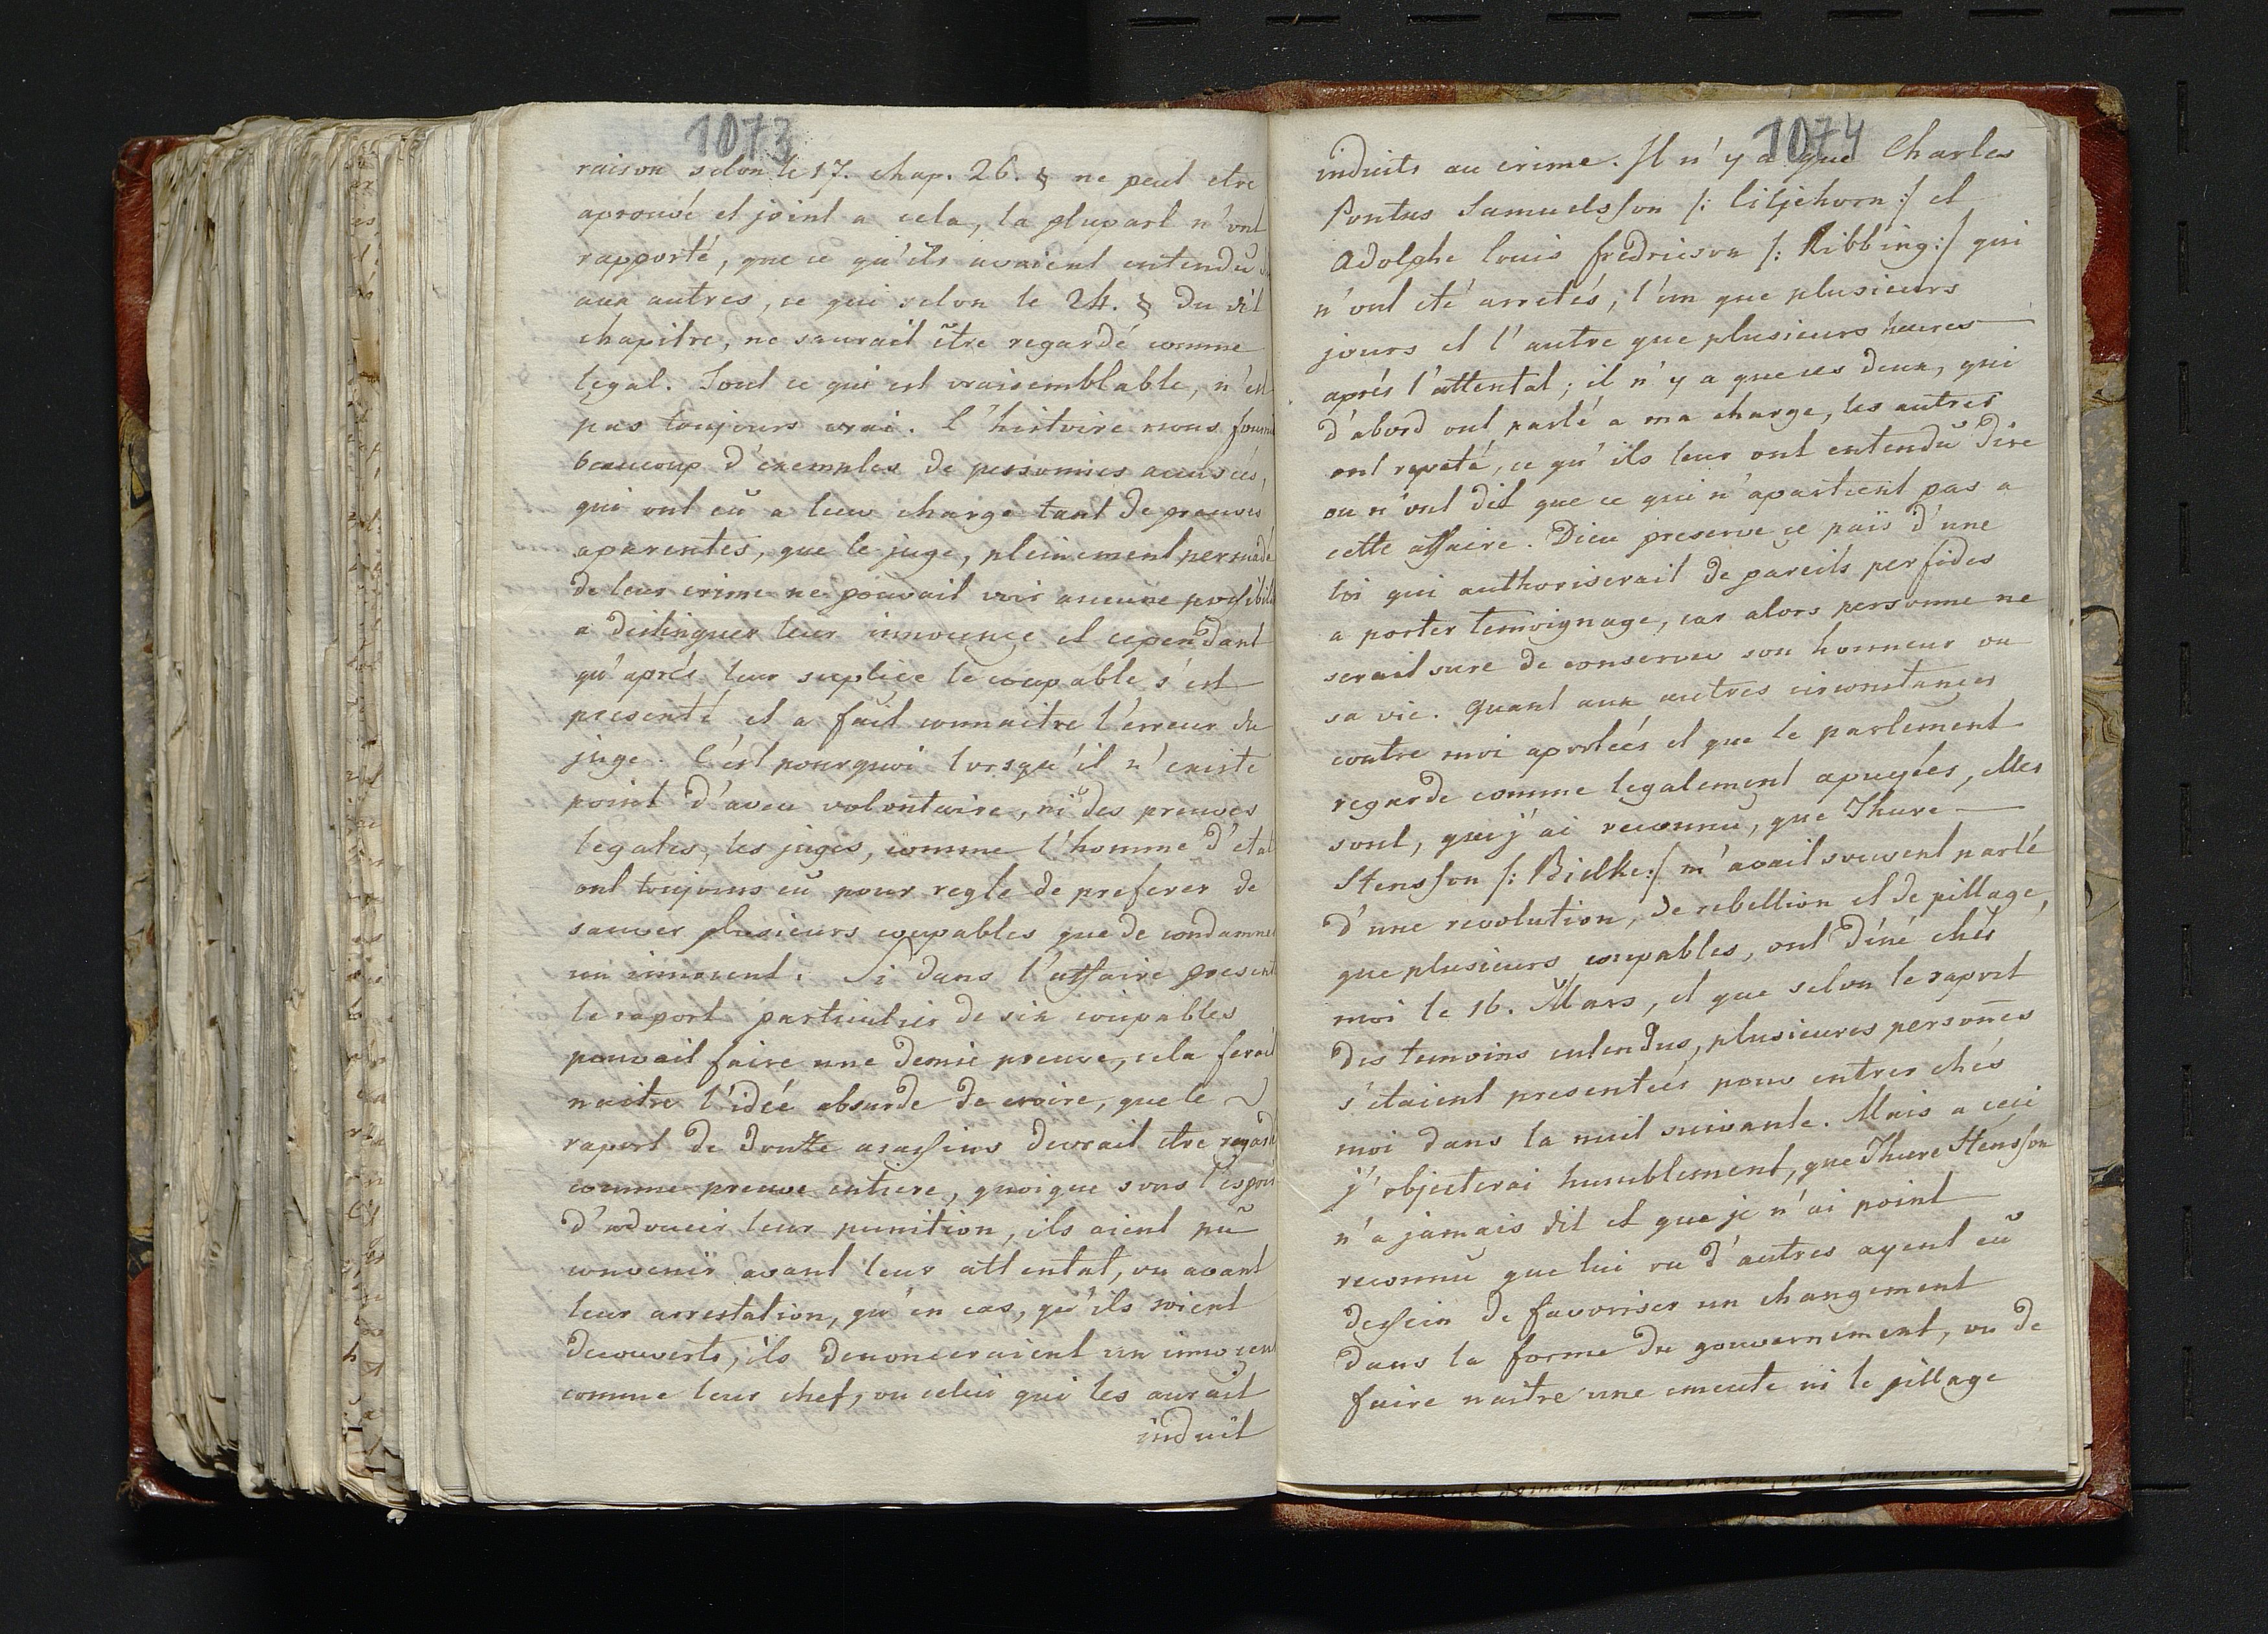 1073
raison selon le 17. chap. 26. § ne peut etre
aprouvé et joint a cela, la plupart n'ont
rapporté, que ce qu'ils avaient entendu
aux autres, ce qui selon le 24. § du dit
chapitre, ne saurait être regardé comme
legal. Tout ce qui est vraisemblable, n'est
pas toujours vrai. L'histoire nous fournit
beaucoup d'exemples de personnes accusées,
qui ont eû a leur charge tant de preuves
aparentes, que le juge, pleinement persuadé
de leur crime ne pouvait voir aucune possibilité
a distinguer leur innocence et cependant
qu'aprés leur suplice le coupable s'est
presenté et a fait connaitre l'erreur du
juge. C'est pourquoi lorsqu'il n'existe
point d'aveu volontaire, ni des preuves
legales, les juges, comme l'homme d'etat
ont toujours eû pour regle de preferer de
sauver plusieurs coupables que de condamner
un innocent. Si dans l'affaire present
le raport particulier de six coupables
pouvait faire une demie preuve, cela ferait
naitre l'idée absurde de croire, que le
raport de douze assassins devrait etre regardé
comme preuve entiere, quoique sous l'espoir
d'adoucir leur punition, ils aient pû
convenir avant leur attentat, ou avant
leur arrestation, qu'en cas, qu'ils soient
decouverts, ils denonceraient un innocent
comme leur chef, ou celui qui les aurait
induit
1074
induits au crime. Il n'y a que Charles
Pontus Samuelsson /: Liljehorn :/ et
Adolphe Louis fredricson /: Ribbing :/ qui
n'ont eté arretés, l'un que plusieurs
jours et l'autre que plusieurs heures
aprés l'attentat; il n'y a que ces deux, qui
d'abord ont parlé a ma charge, les autres
ont repeté, ce qu'ils leur ont entendû dire
ou n'ont dit que ce qui n'apartient pas a
cette affaire. Dieu preserve ce païs d'une
loi qui authoriserait de pareils perfides
a porter temoignage, car alors personne ne
serait sure de conserver son honneur ou
sa vie. Quant aux autres circonstances
contre moi aportées et que le parlement
regarde comme legalement apuyées, elles
sont, que j'ai reconnu, que Thure
Stensson /: Bielke :/ m'avait souvent parlé
d'une revolution, de rebellion et de pillage,
que plusieurs coupables, ont diné chés
moi le 16. Mars, et que selon le raport
des temoins entendus, plusieures persoñes
s'etaient presenteés pour entrer chés
moi dans la nuit suivante. Mais a ceci
j'objecterai humblement, que Thure Stensson
n'a jamais dit et que je n'ai point
reconnu que lui ou d'autres ayent eû
dessein de favoriser un changement
dans la forme du gouvernement, ou de
faire naitre une emeute ni le pillage